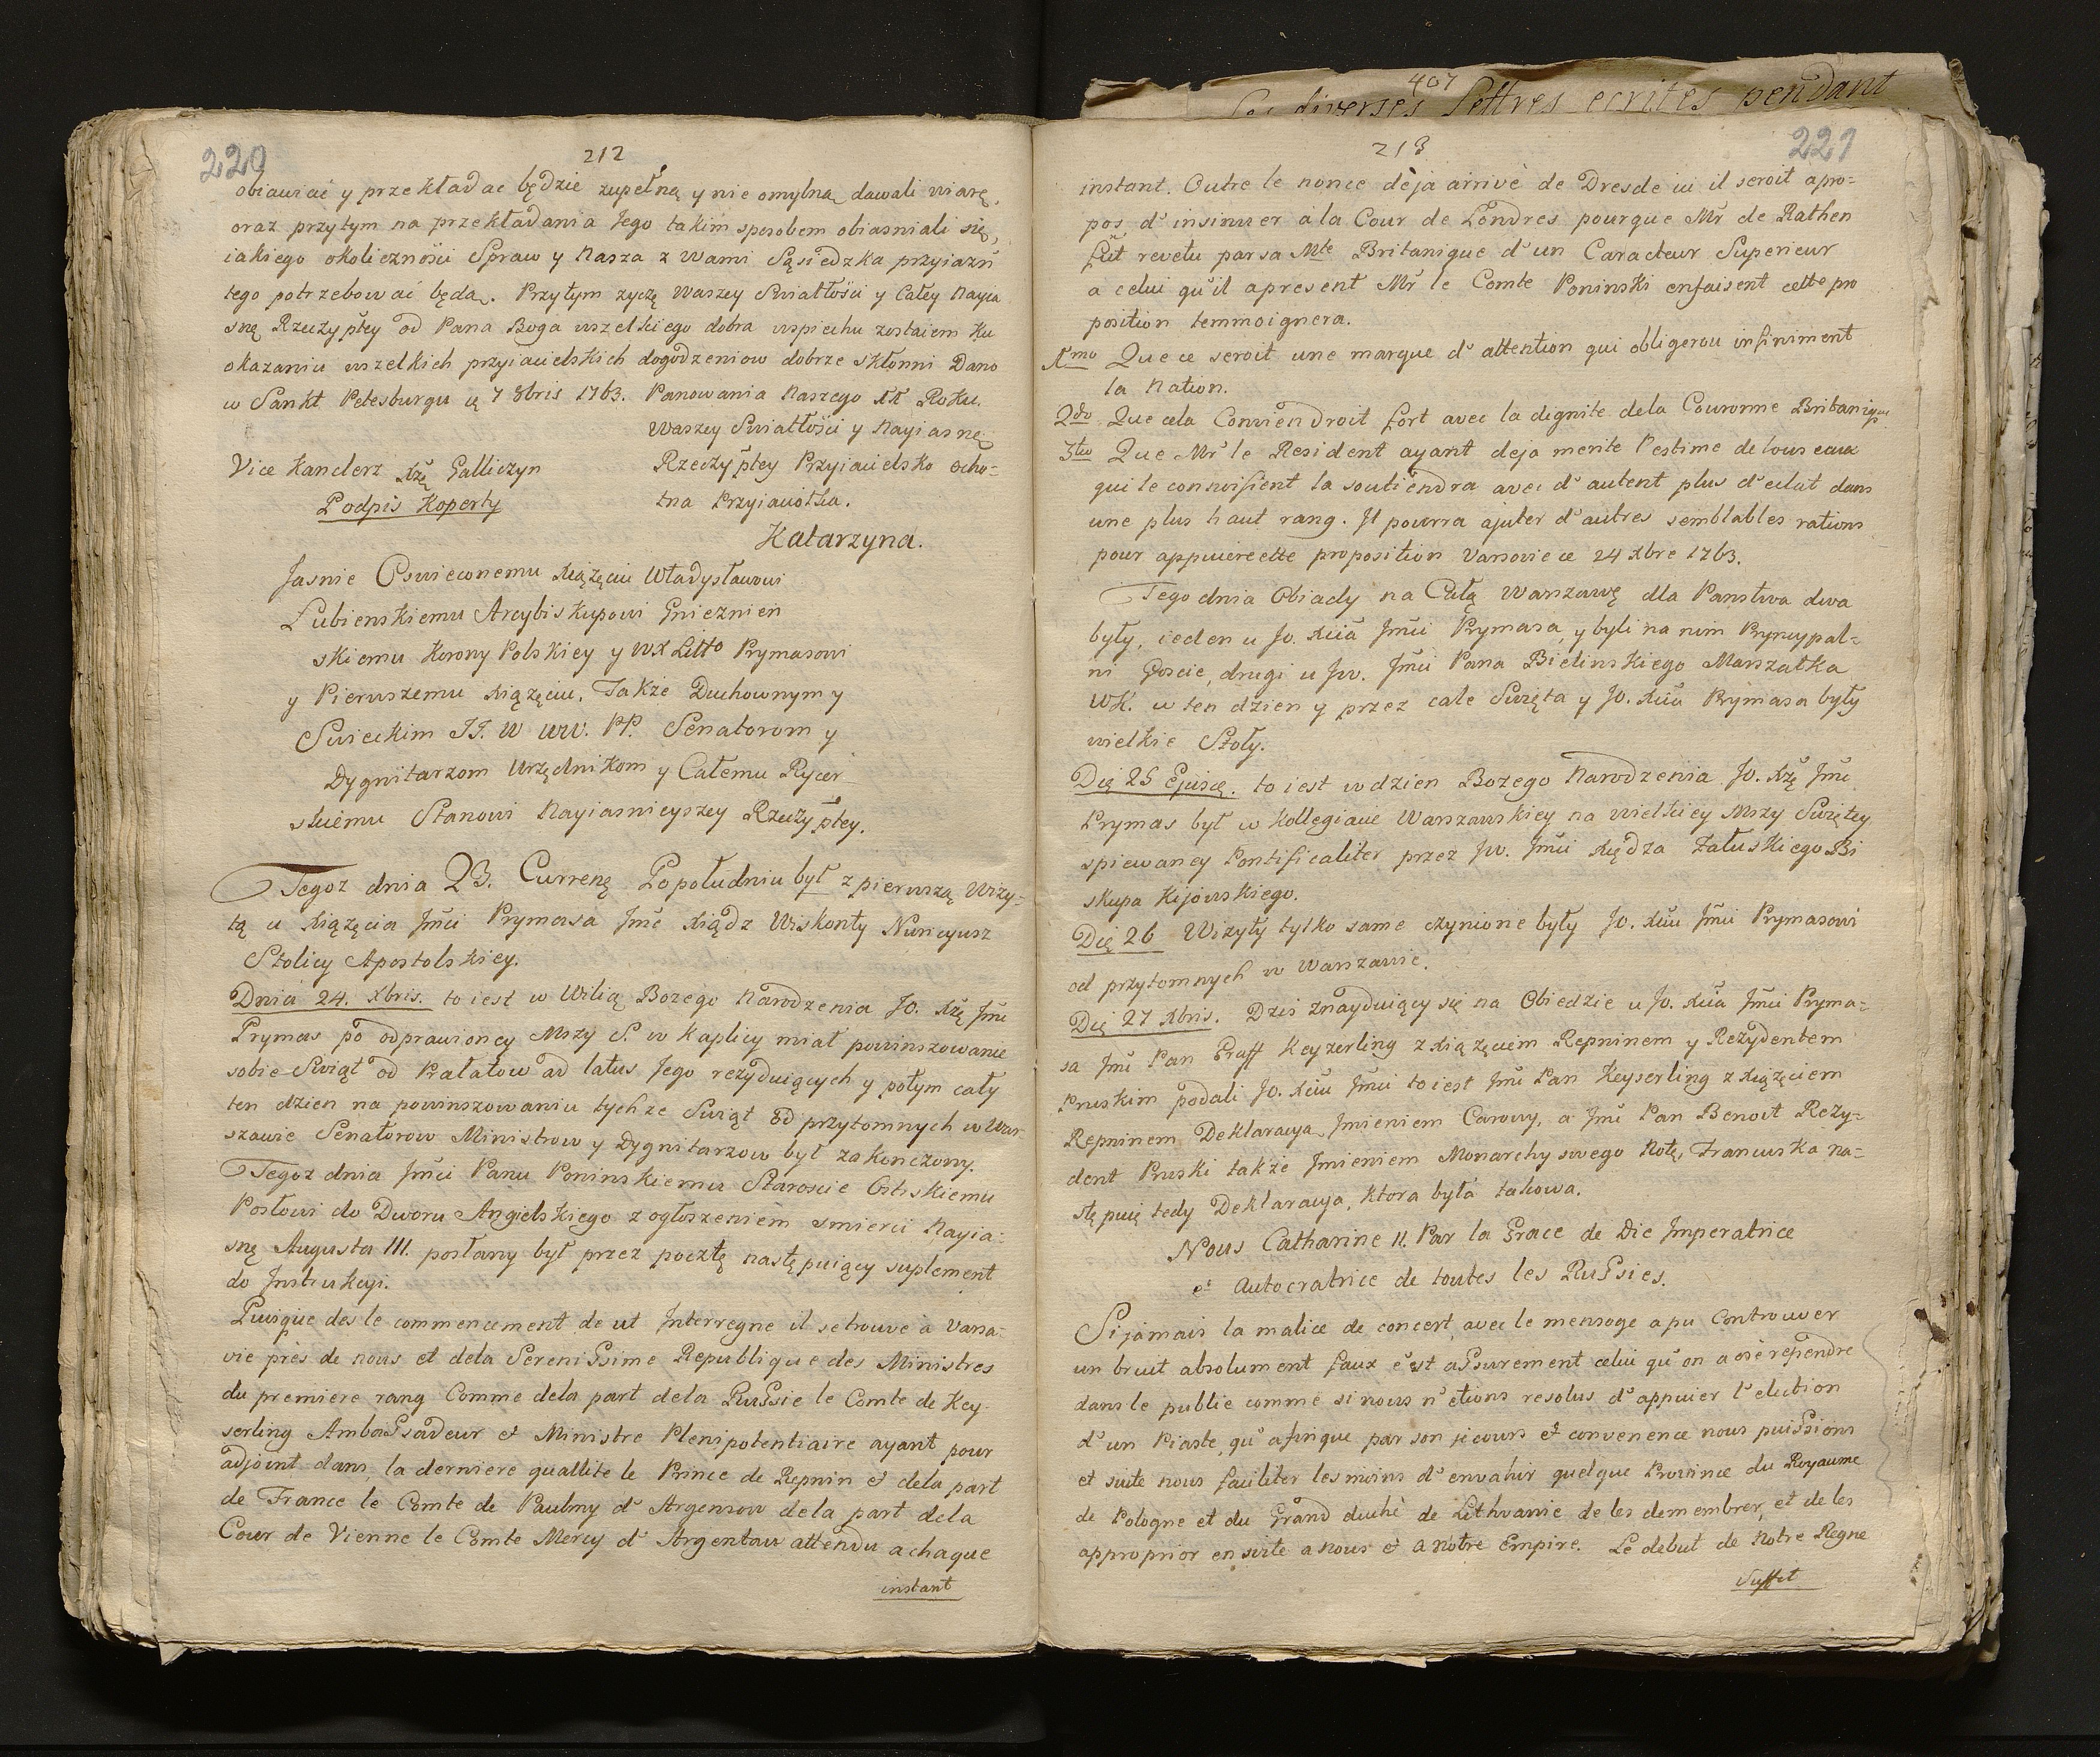 220
212
obiawiać y przekładac będzie zupełną y nie omylną dawali wiarę,
oraz przytym na przekładania Jego takim sposobem obiasniali się,
iakiego okoliczności Spraw y Nasza z Wami Sąsiedzka przyiazń
tego potrzebować będą. Przytym zyczę Waszey Swiatłości y Całey Nayia
snę Rzeczyptey od Pana Boga wszelkiego dobra wspiechu zostaiem Ku
okazaniu wszelkich przyiacielskich dogodzeniow dobrze skłonni Dano
w Sankt Petesburgu ię 7 8bris 1763. Panowania Naszego II Roku.
Waszey Swiatłości y Nayiasnę
Vice Kanclerz Xżę Galliczyn
Rzeczyptey Przyiacielsko ocho=
Podpis Koperty
tna Przyiaciołka.
Katarzyna.
Jasnie Oswieconemu Xiążęciu Władysławowi
Lubienskiemu Arcybiskupowi Gnieznien
skiemu Korony Polskiey y WX Litto Prymasowi
y Pierwszemu Xiążęciu, Także Duchownym y
Swieckim JJ. W WW. PP. Senatorom y
Dygnitarzom Urzędnikom y Całemu Rycer
skiemu Stanowi Nayiasnieyszey Rzeczyptey.
Tegoz dnia 23. Currenę Popołudniu był z pierwszą Wizy=
tą u Xiążęcia Jmci Prymasa Jmć Xiądz Wiskonty Nuncyusz
Stolicy Apostolskiey.
Dnia 24. Xbris. to iest w Wilią Bozego Narodzenia Jo. Xżę Jmć
Prymas po odprawioney Mszy S. w Kaplicy miał powinszowanie
sobie Swiąt od Prałatow ad latus Jego rezyduiących y potym cały
ten dzien na powinszowaniu tychze Swiąt od przytomnych w War
szawie Senatorow Ministrow y Dygnitarzow był zakonczony.
Tegoz dnia Jmci Panu Poninskiemu Staroscie Ostrskiemu
Posłowi do Dworu Angielskiego z ogłoszeniem smierci Nayia=
snę Augusta III. posłany był przez pocztę następuiący suplement
do Instrukcyi.
Puisque des le commencement de ut Interregne il se trouve à Varsa=
vie près de nous et dela Serenissime Republique des Ministres
du premiere rang Comme dela part dela Russie le Comte de Key
serling Ambassadeur et Ministre Plenipotentiaire ayant pour
adjoint dans la derniere quallite le Prince de Repnin et dela part
de France le Comte de Paulmy d'Argenson dela part dela
Cour de Vienne le Comte Mercy d'Argentau attendu a chaque
instant
407
Les diverses Lettres ecrites pendant
213
221
instant. Outre le nonce dèja arrivè de Dresde iu il seroit apro=
pos, d'insinuer à la Cour de Londres pourque Mr de Rathen
fut revetu par sa Mte Britanique d'un Caracteur Superieur
a celui qu'il apresent Mr le Comte Poninski enfaisent cette pro
position temmoignera.
1mo Que ce seroit une marque d'attention qui obligerou infiniment
la Nation.
2do Que cela Conviendroit fort avec la dignite dela Couronne Britanique
3tio Que Mr le Resident ayant deja merite l'estime de tous ceux
qui le connoisient la soutiendra avec d'autent plus d'eclat dans
une plus haut rang. Il pourra ajuter d'autres semblables rations
pour appuier cette proposition Varsovie ce 24 Xbre 1763.
Tego dnia Obiady na Całą Warszawę dla Panstwa dwa
były, ieden u Jo. Xcia Jmci Prymasa, y byli na nim Pryncypal=
ni Goscie, drugi u Jw. Jmci Pana Bielinskiego Marszałka
WK. w ten dzien y przez całe Swięta y Jo. Xcia Prymasa były
wielkie Stoły.
Dię 25 Ejuscę. to iest w dzien Bozego Narodzenia Jo. Xżę Jmć
Prymas był w Kollegiacie Warszawskiey na wielkiey Mszy Swiętey
spiewaney Pontificaliter przez Jw. Jmci Xiędza Załuskiego Bi
skupa Kijowskiego.
Dię 26 Wizyty tylko same czynione były Jo. Xciu Jmci Prymasowi
od przytomnych w Warszawie.
Dię 27 Xbris. Dzis znayduiący się na Obiedzie u Jo. Xcia Jmci Pryma=
sa Jmć Pan Graff Keyzerling z Xiążęciem Repninem y Rezydentem
Pruskim podali Jo. Xciu Jmci to iest Jmć Pan Keyserling z Xiążęciem
Repninem Deklaracya Jmieniem Carowy, a Jmć Pan Benoit Rezy=
dent Pruski także Jmieniem Monarchy swego Notę, Francuska na=
stępuię tedy Deklaracya, ktora była takowa.
Nous Catharine II. Par la Grace de Die Imperatrice
et Autocratrice de toutes les Russies.
Si jamais la malice de concert, avec le mensoge a pu Controuver
un bruit absolument faux c'est assurement celui qu'on a osè rependre
dans le public comme si nous n'etions resolus d'appuier l'election
d'un Piaste, qu'afinque par son secours et convenence nous puissions
et suite nous faciliter les moins d'envahir quelque Province du Royaume
de Pologne et du Grand duchè de Lithvanie de les demembrer, et de les
approprior en suite a nous et a notre Empire. Le debut de notre Regne
Suffit